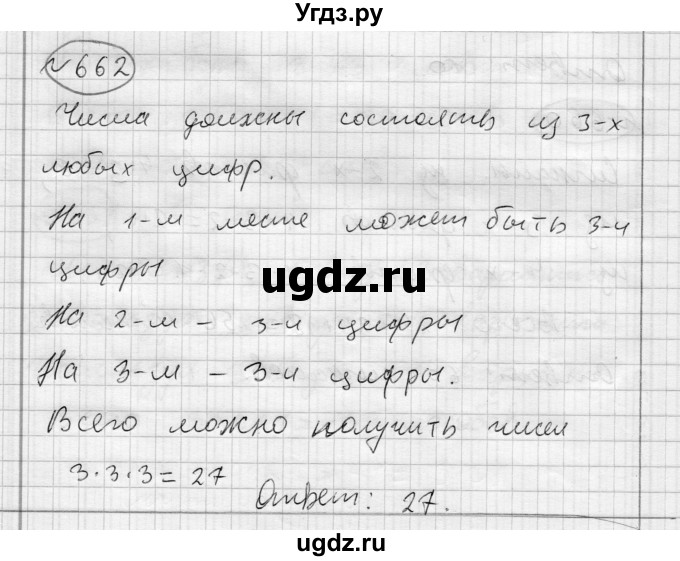 Угдз.ру
№ 662
Числа должны состоять из 3-х
любых цифр.
На 1-м месте может быть 3-и
цифры
ugdz.ru
На 2-м – 3-и цифры
На 3-м – 3-и цифры.
Всего можно получить чисел
3·3·3=27
Ответ: 27.
ugdz.ru